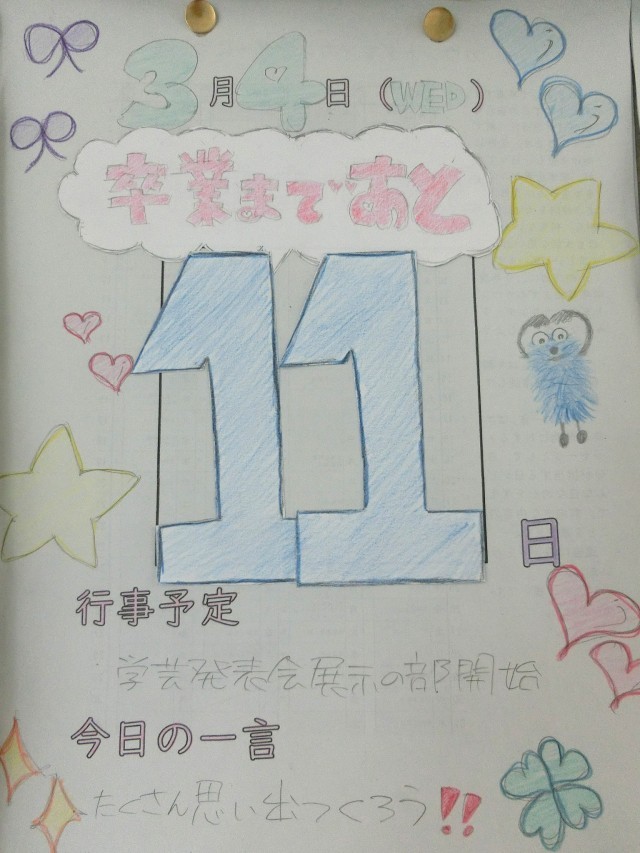 3月4日（WED）
卒業まであと
11日
行事予定
学芸発表会展示の部開始
今日の一言
たくさん思い出つくろう!!